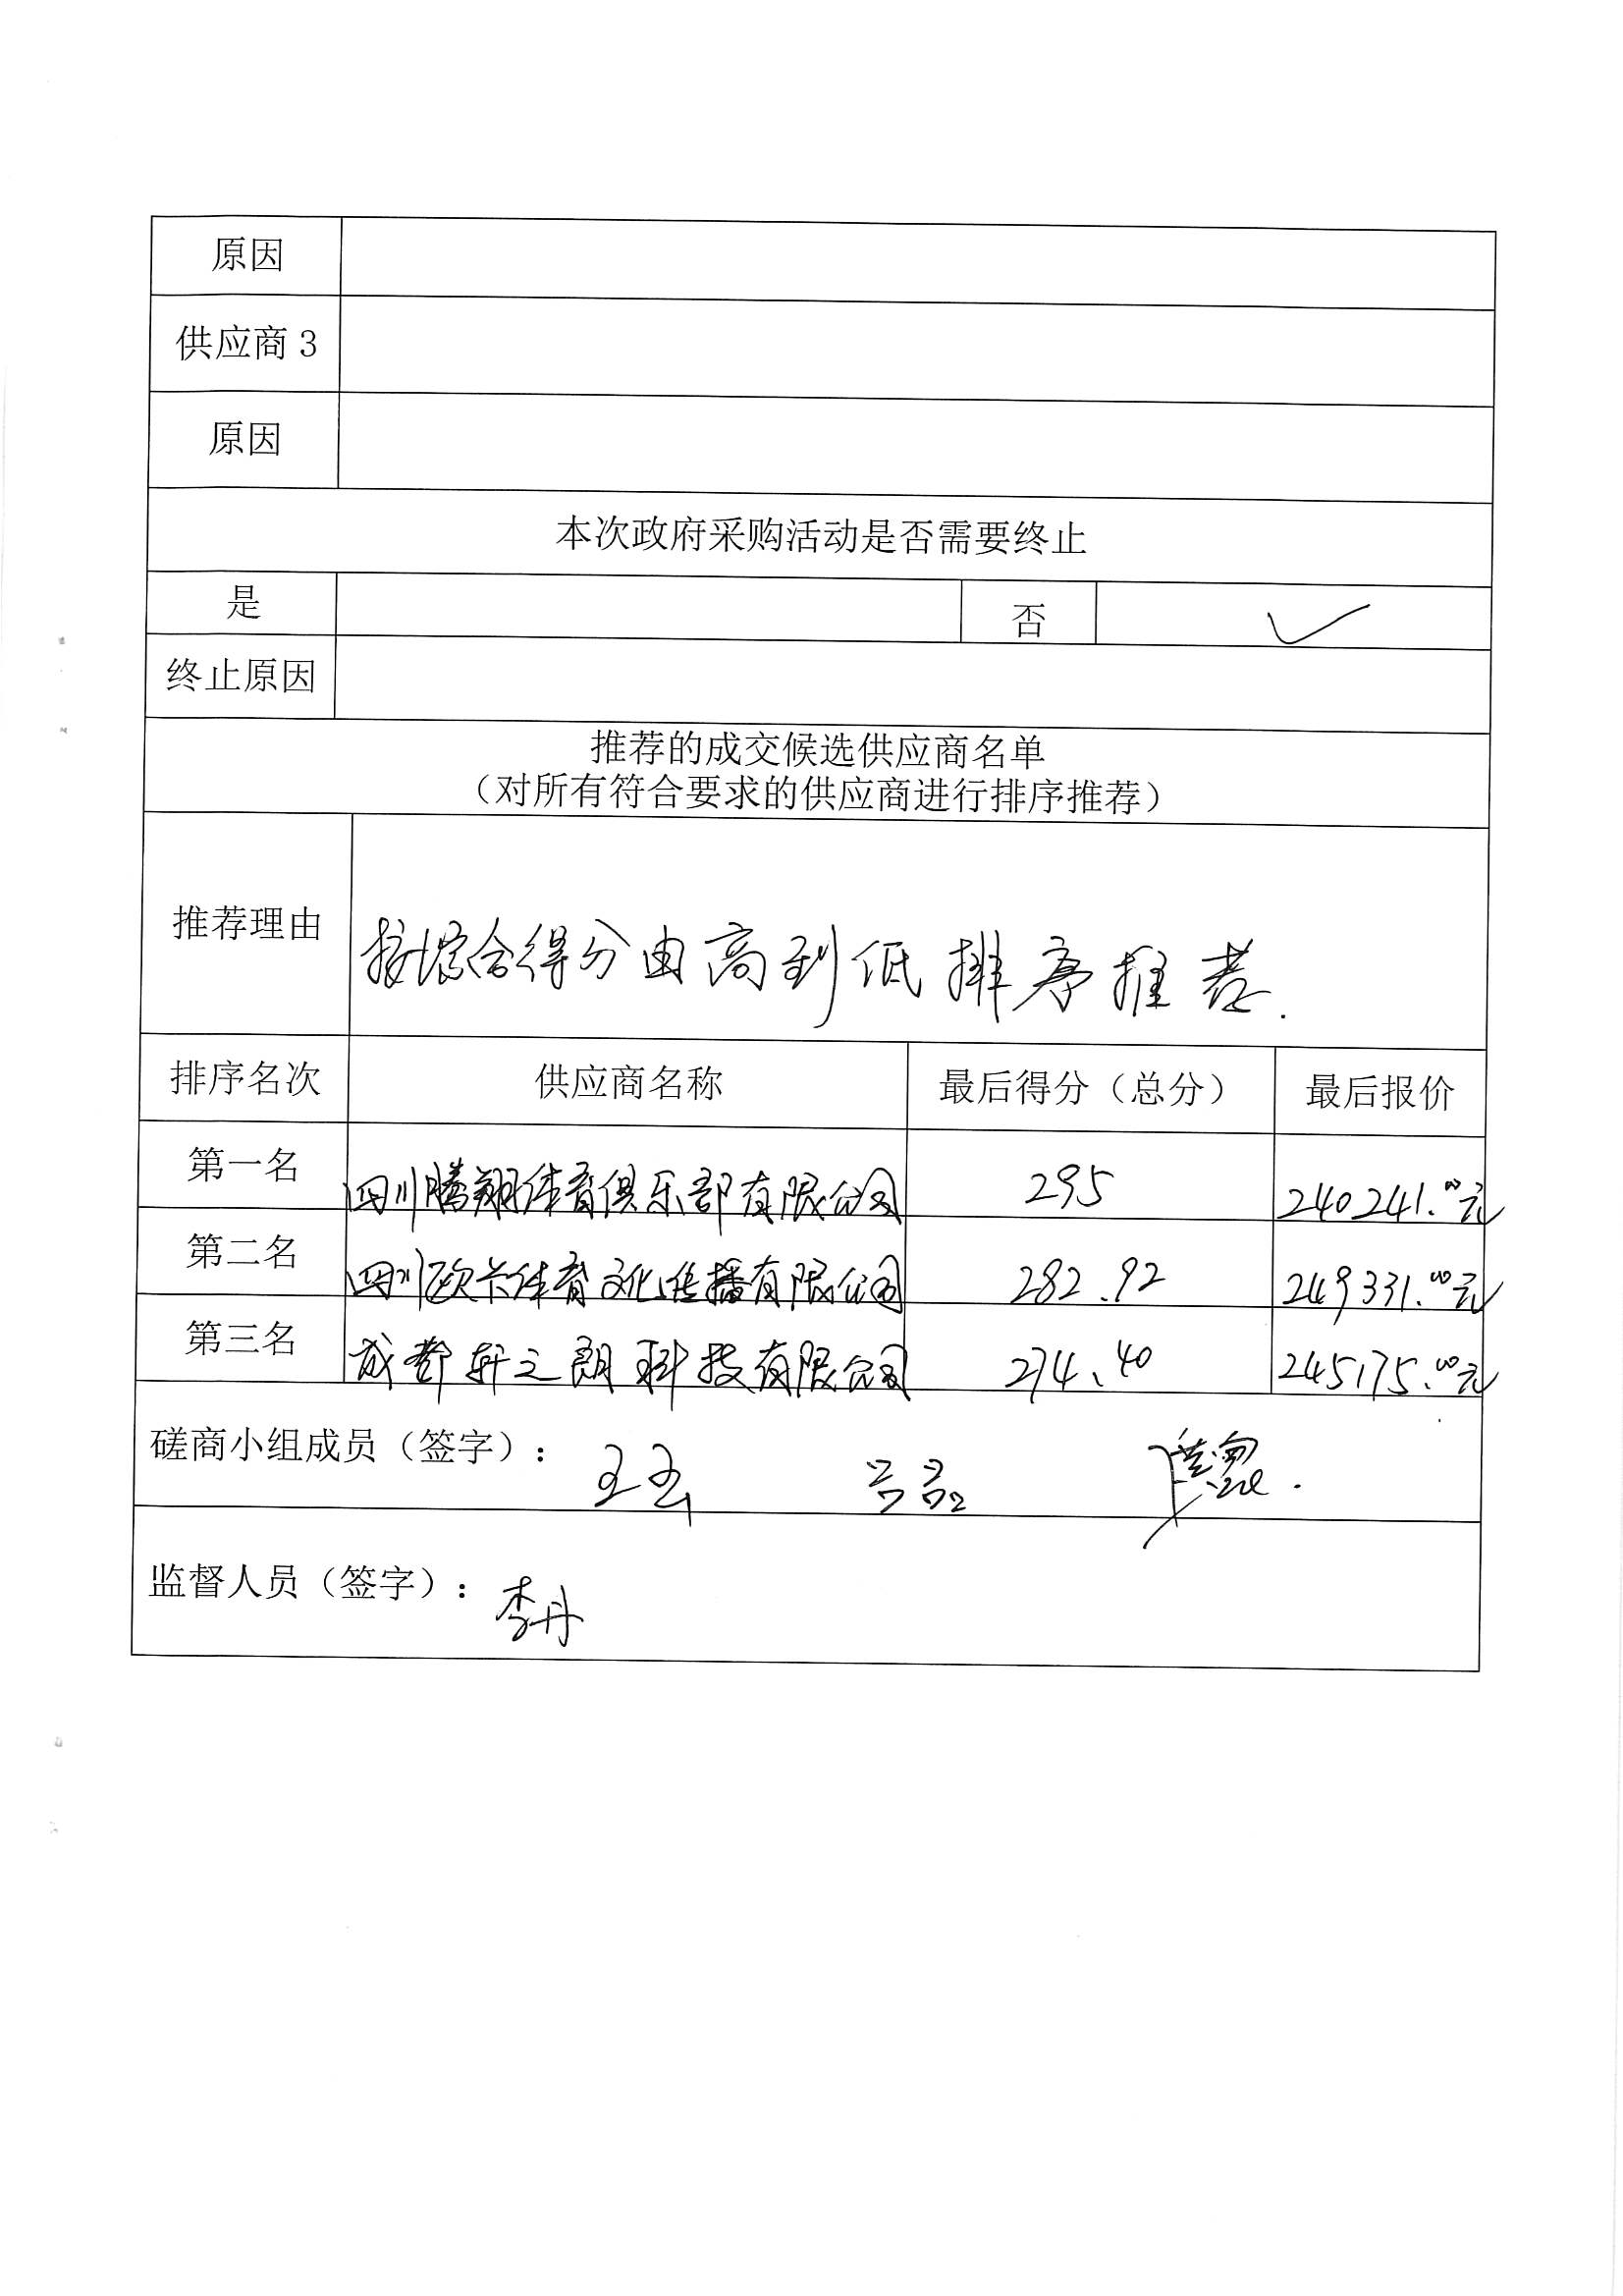 原因
供应商 3
原因
本次政府采购活动是否需要终止
是 否 ✓
终止原因
推荐的成交候选供应商名单
（对所有符合要求的供应商进行排序推荐）
推荐理由 按综合得分由高到低排序推荐.
排序名次 供应商名称 最后得分（总分） 最后报价
第一名 四川腾翔体育俱乐部有限公司 295 240241.00元
第二名 四川欧卡体育文化传播有限公司 282.92 249331.00元
第三名 成都轩之朗科技有限公司 274.40 245175.00元
磋商小组成员（签字）：
监督人员（签字）：李丹